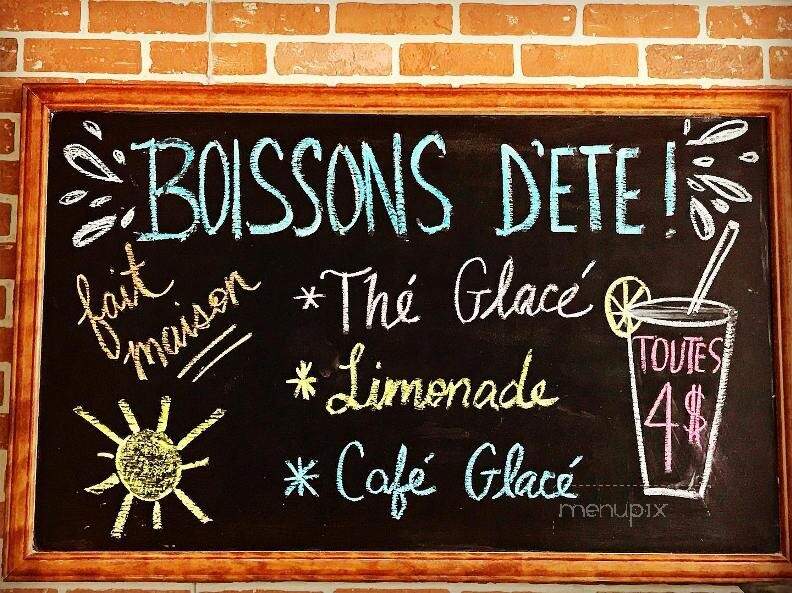 BOISSONS D'ETE!
fait
maison
*Thé Glacé
*Limonade
*Café Glacé
TOUTES
4$
menupix